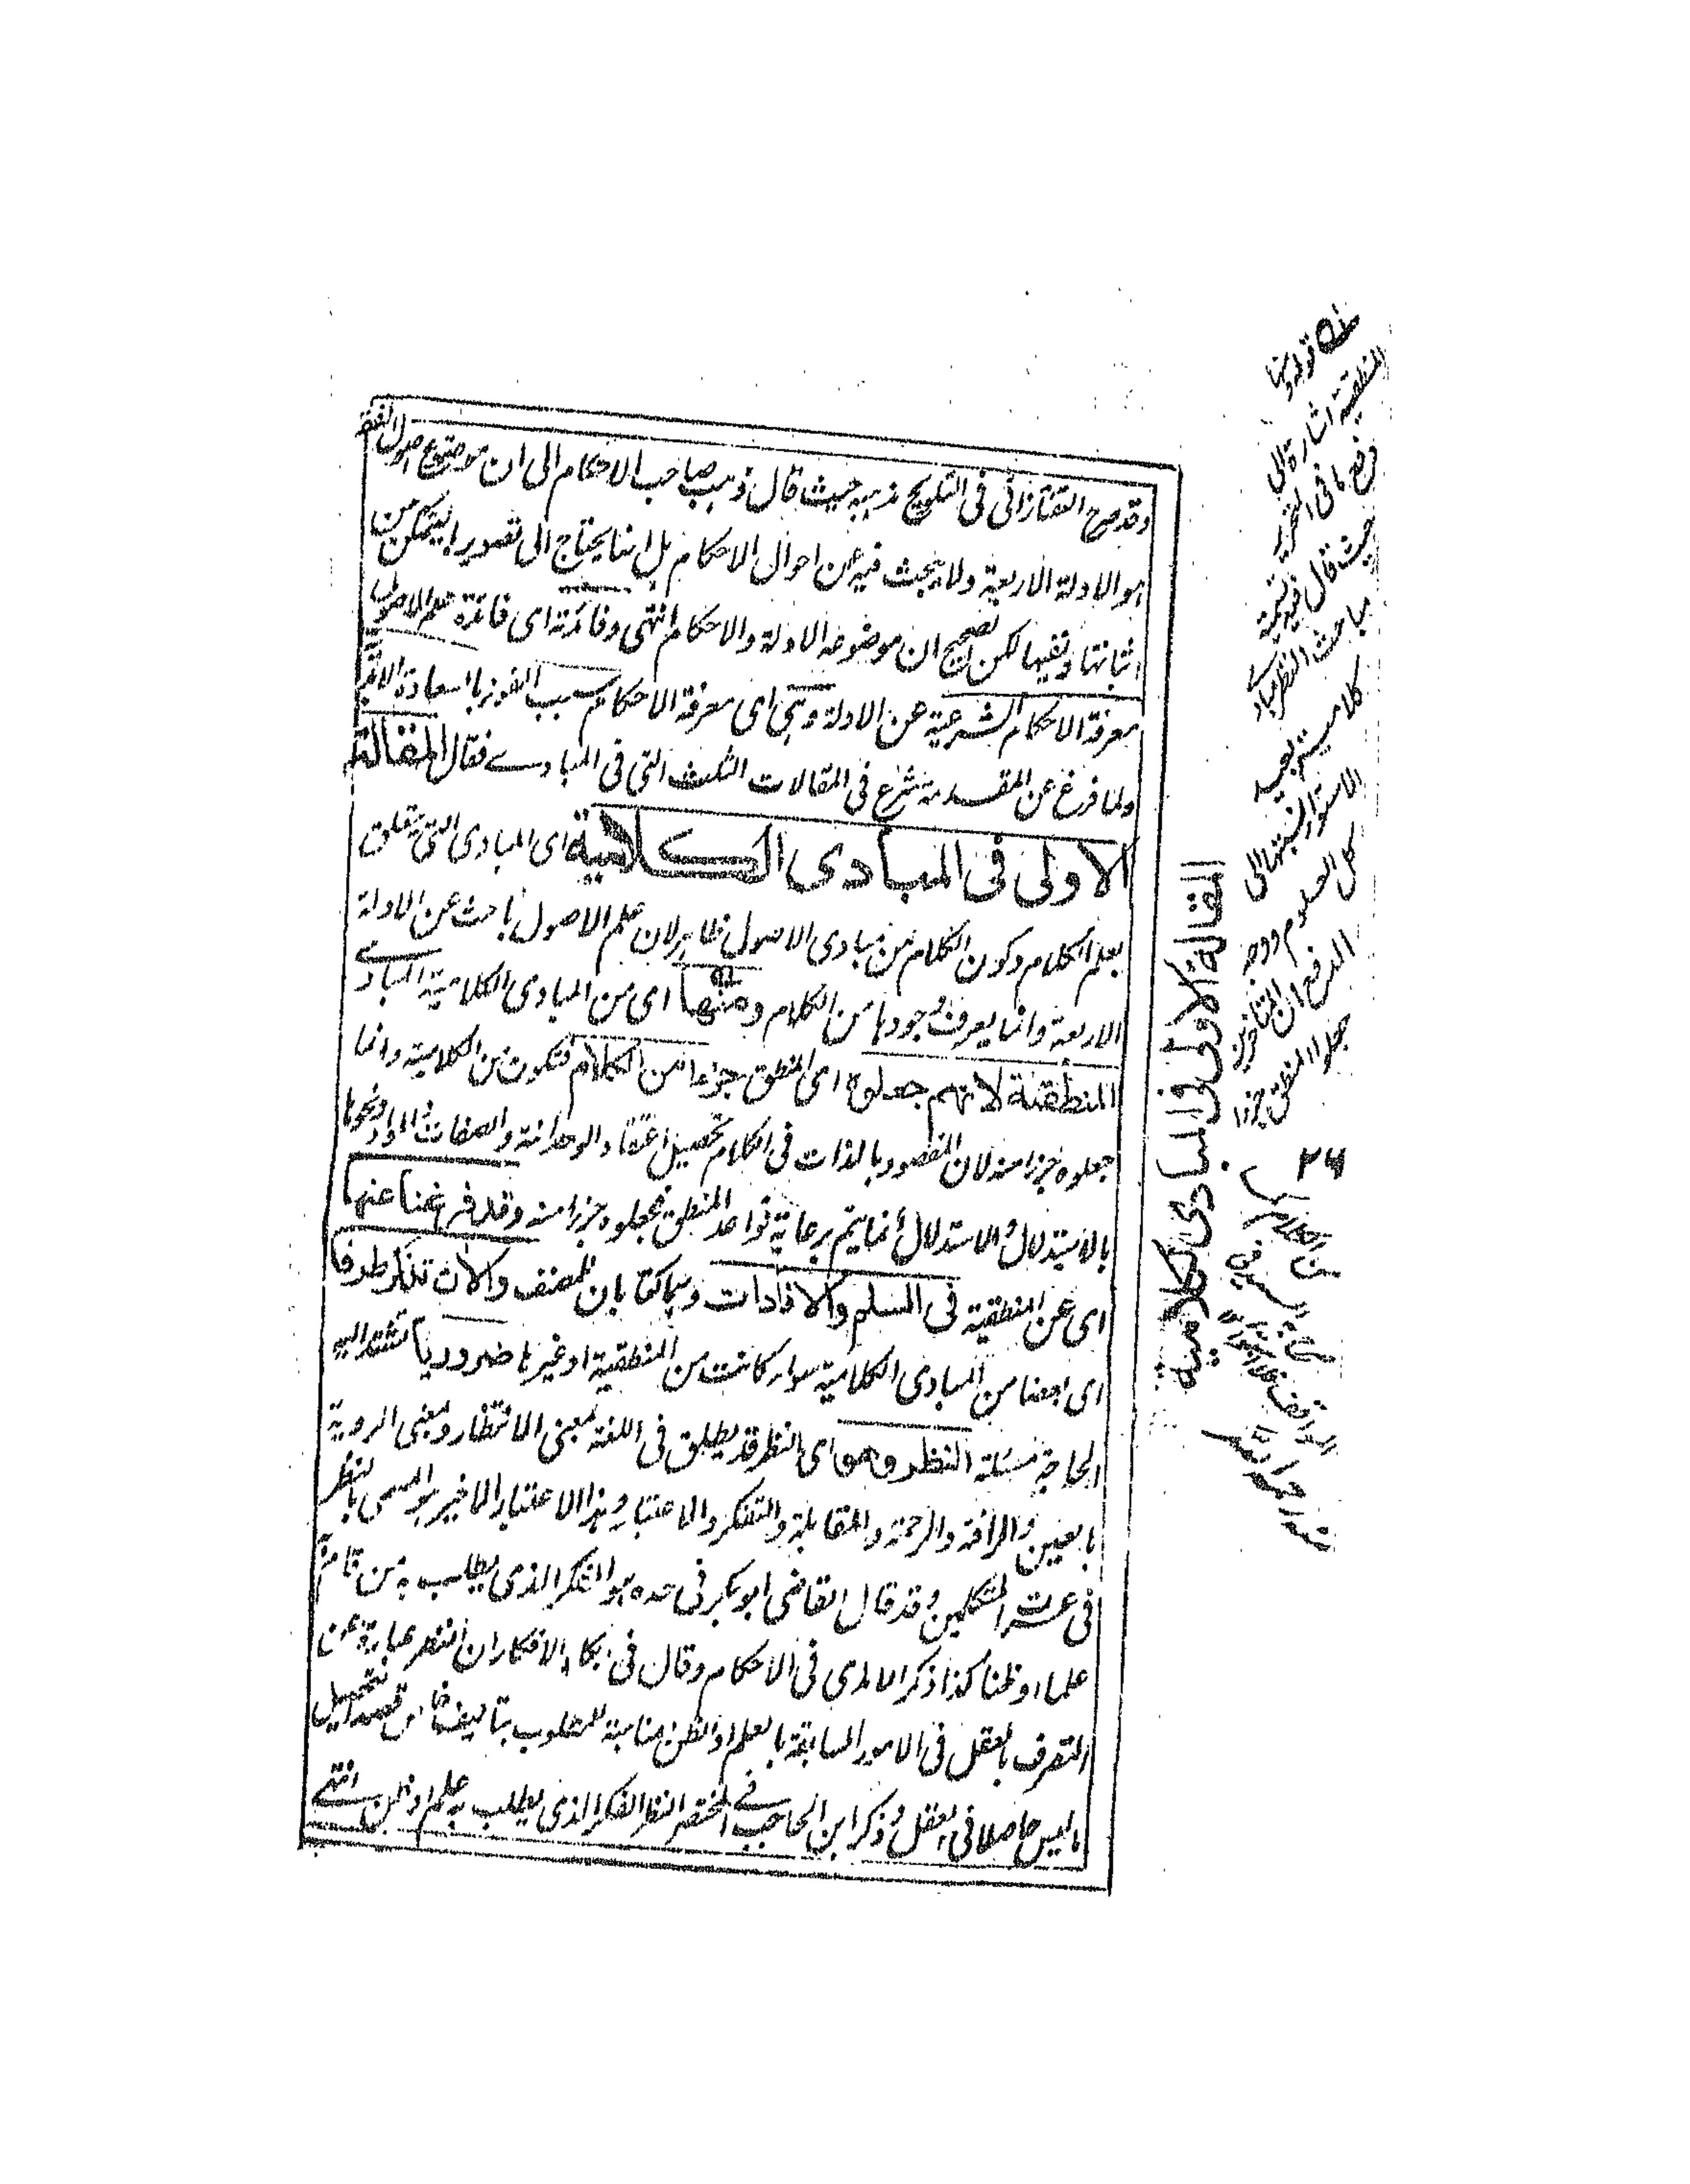 وقد صرح التفتازانى فى التلويح بمذهبه حيث قال ذهب صاحب الاحكام الى ان موضوع اصول الفقه
هو الادلة الاربعة ولا يبحث فيه عن احوال الاحكام بل انما يحتاج الى تصورها ليتمكن من
اثباتها ونفيها لكن الصحيح ان موضوعه الادلة والاحكام انتهى وفائدته اى فائدة علم الاصول
معرفة الاحكام الشرعية عن الادلة وهى اى معرفة الاحكام سبب الفوز بالسعادة الابدية
ولما فرغ عن المقدمة شرع فى المقالات الثلث التى فى المبادے فقال المقالة
الاولى فى المبادى الكلامية اى المبادى التى يتعلق
بعلم الكلام وكون الكلام من مبادى الاصول ظاهر لان علم الاصول باحث عن الادلة
الاربعة وانما يعرف وجودها من الكلام ومنها اى من المبادى الكلامية المبادے
المنطقية لانهم جعلوه اى المنطق جزءا من الكلام فتكون من الكلامية وانما
جعلوه جزءا منه لان المقصود بالذات فى الكلام تحصيل اعتقاد الوحدانية والصفات ونحوها
بالاستدلال والاستدلال انما يتم برعاية قواعد المنطق فجعلوه جزءا منه وقد فرغنا عنها
اى عن المنطقية فى السلم والافادات وهما كتابان للمصنف والآن نذكر طرفا
اى بعضا من المبادى الكلامية سواء كانت من المنطقية او غيرها ضروريا تشتد اليه
الحاجة مسئلة النظر وهو اى النظر قد يطلق فى اللغة بمعنى الانتظار وبمعنى الروية
بالعين والرافة والرحمة والمقابلة والتفكر والاعتبار وهذا الاعتبار الاخير هو المسمى بالنظر
فى عرف المتكلمين وقد قال القاضى ابو بكر فى حده هو الفكر الذى يطلب به من قام به
علما او ظنا كذا ذكر الامدى فى الاحكام وقال فى ابكار الافكار ان النظر عبارة عن
التصرف بالعقل فى الامور السابقة بالعلم او الظن مناسبة للمطلوب بتاليف خاص قصدا لتحصيل
ما ليس حاصلا فى العقل وذكر ابن الحاجب فے المختصر النظر الفكر الذى يطلب به علم او ظن انتهے
المقالة الاولى فى المبادى الكلامية
قوله ومنها
المنطقية اشارة الى
دفع ما فى التحرير
حيث قال فيه تسمية
مباحث النظر مبادے
كلامية بعيد
لاستواء نسبتها الى
كل العلوم ووجه
الدفع ان المتاخرين
جعلوا المنطق جزءا
٢٦